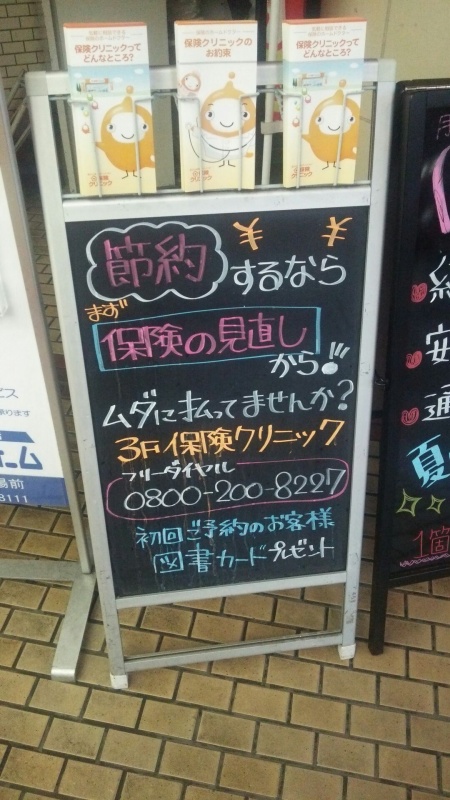 保険クリニックって
どんなところ?
保険クリニックの
お約束
保険クリニックって
どんなところ?
節約するなら
まず
保険の見直し
から!!
ムダに払ってませんか?
3F保険クリニック
フリーダイヤル
0800-200-8227
初回ご予約のお客様
図書カードプレゼント
安
通
夏
1箇
8111